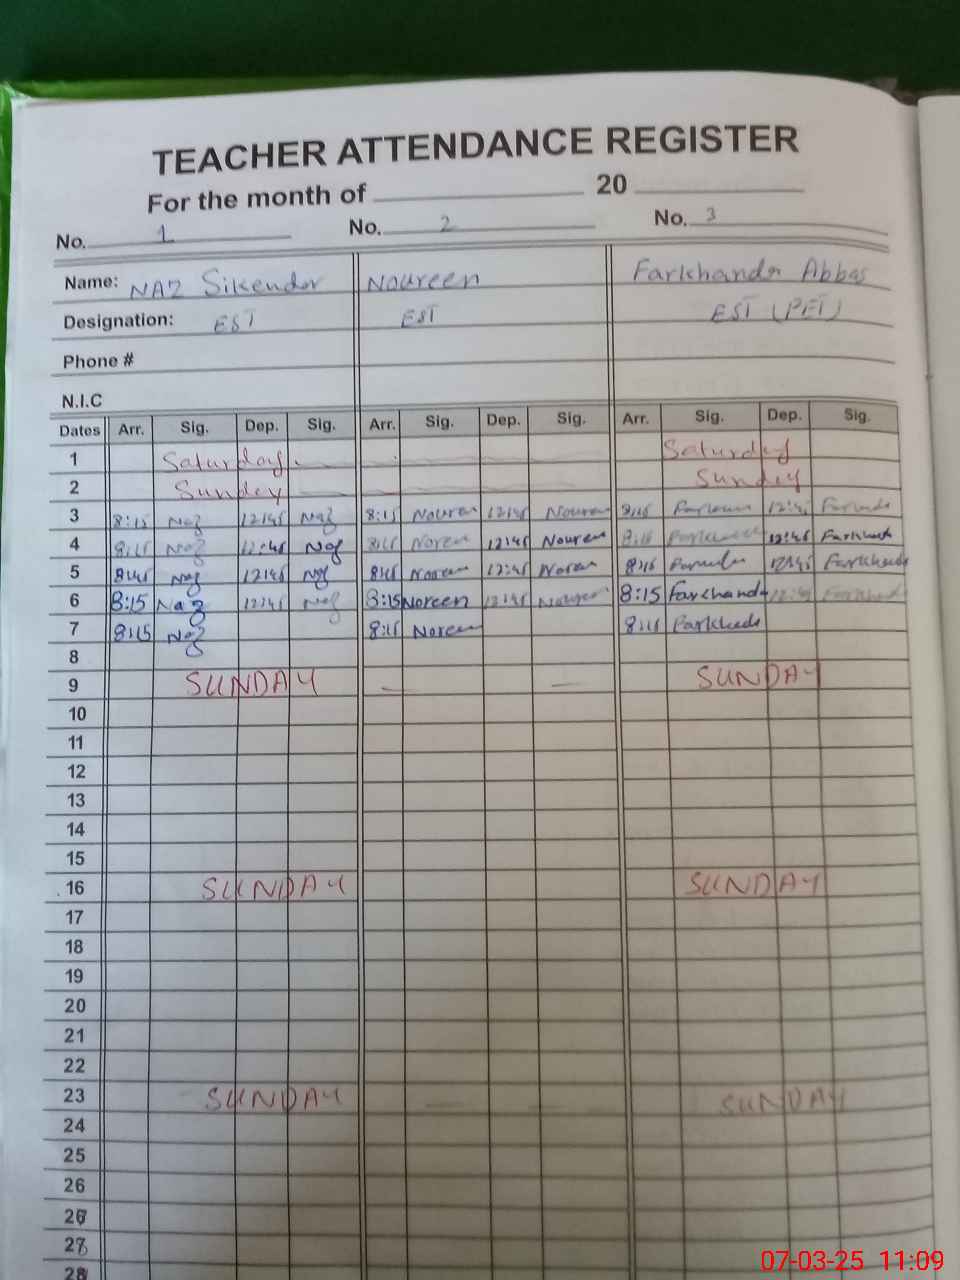 TEACHER ATTENDANCE REGISTER
For the month of 20
No. 1 No. 2 No. 3
Name: NAZ Sikendar Noureen Farkhanda Abbas
Designation: EST EST EST (PET)
Phone #
N.I.C
Dates Arr. Sig. Dep. Sig. Arr. Sig. Dep. Sig. Arr. Sig. Dep. Sig.
1 Saturday Saturday
2 Sunday Sunday
3 8:15 Naz 12:45 Naz 8:15 Nouren 12:45 Nouren 8:15 12:45
4 8:15 Naz 12:45 Naz 8:15 Noren 12:45 Nouren 8:15 12:45 Farkhank
5 8:15 Naz 12:45 Naz 8:15 Noren 12:45 Noren 8:15 12:45 Farkhande
6 8:15 Naz 12:45 Naz 8:15 Noreen 12:45 8:15 Farkhand 12:45
7 8:15 Naz 8:15 Noreen 8:15
8
9 SUNDAY SUNDAY
10
11
12
13
14
15
16 SUNDAY SUNDAY
17
18
19
20
21
22
23 SUNDAY SUNDAY
24
25
26
27
28
07-03-25 11:09